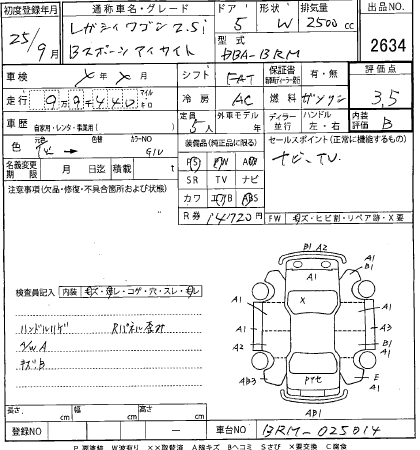 初度登録年月
通称車名・グレード
ドア 形状 排気量
出品NO
25/9月
レガシィワゴン 2.5i
Bスポーツ アイサイト
5 W 2500cc
型式
DBA-BRM
2634
車検 X年 X月
シフト FAT
保証書 有・無
評価点
走行 99440 マイル キロ
冷房 AC
燃料 ガソリン
3.5
車歴 自家用・レンタ・事業用( )
定員 5人
外車モデル 年
ディーラー 並行
ハンドル 左・右
内装評価 B
色 元色 色替 カラーNO
G1U
装備品(純正品に限る)
セールスポイント(正常に機能するもの)
PS PW AW
ナビ、TV.
名義変更期限 月 日迄 積載 t
SR TV ナビ
注意事項(欠品・修復・不具合箇所および状態)
カワ エアB ABS
R券 14720円
FW キズ・ヒビ割・リペア跡・X要
B1 A2
A1
B1
A1
X
検査員記入 内装 キズ・汚レ・コゲ・穴・スレ・
A1
A1
ハンドルハゲ Rパネル歪み
A1
A3
VWA
A2
B1
A1
キズB
AB3
E
A1
AB1
長さ cm 幅 cm 高さ cm
登録NO
車台NO BRM-025014
P要塗装 W波有り XX取替済 A線キズ Bヘコミ Sさび X要交換 C腐食